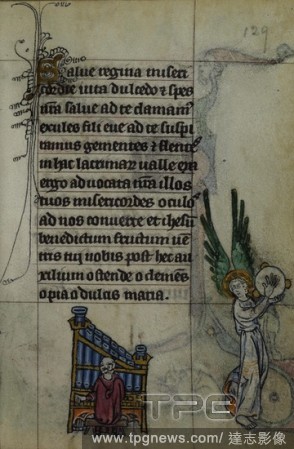 129
Salue regina miseri
cordie uita dulcedo & spes
nr̄a salue ad te clamam᷒
exules filii eue ad te suspi
ramus gementes & flentes
in hac lacrimar̄ ualle eya
ergo aduocata nr̄a illos
tuos misericordes oculos
ad nos conuerte et ihesum
benedictum fructum uen
tris tui nobis post hoc au
xilium ostende o clemens
o pia o dulcis maria.
TPG
www.tpgnews.com/ 達志影像